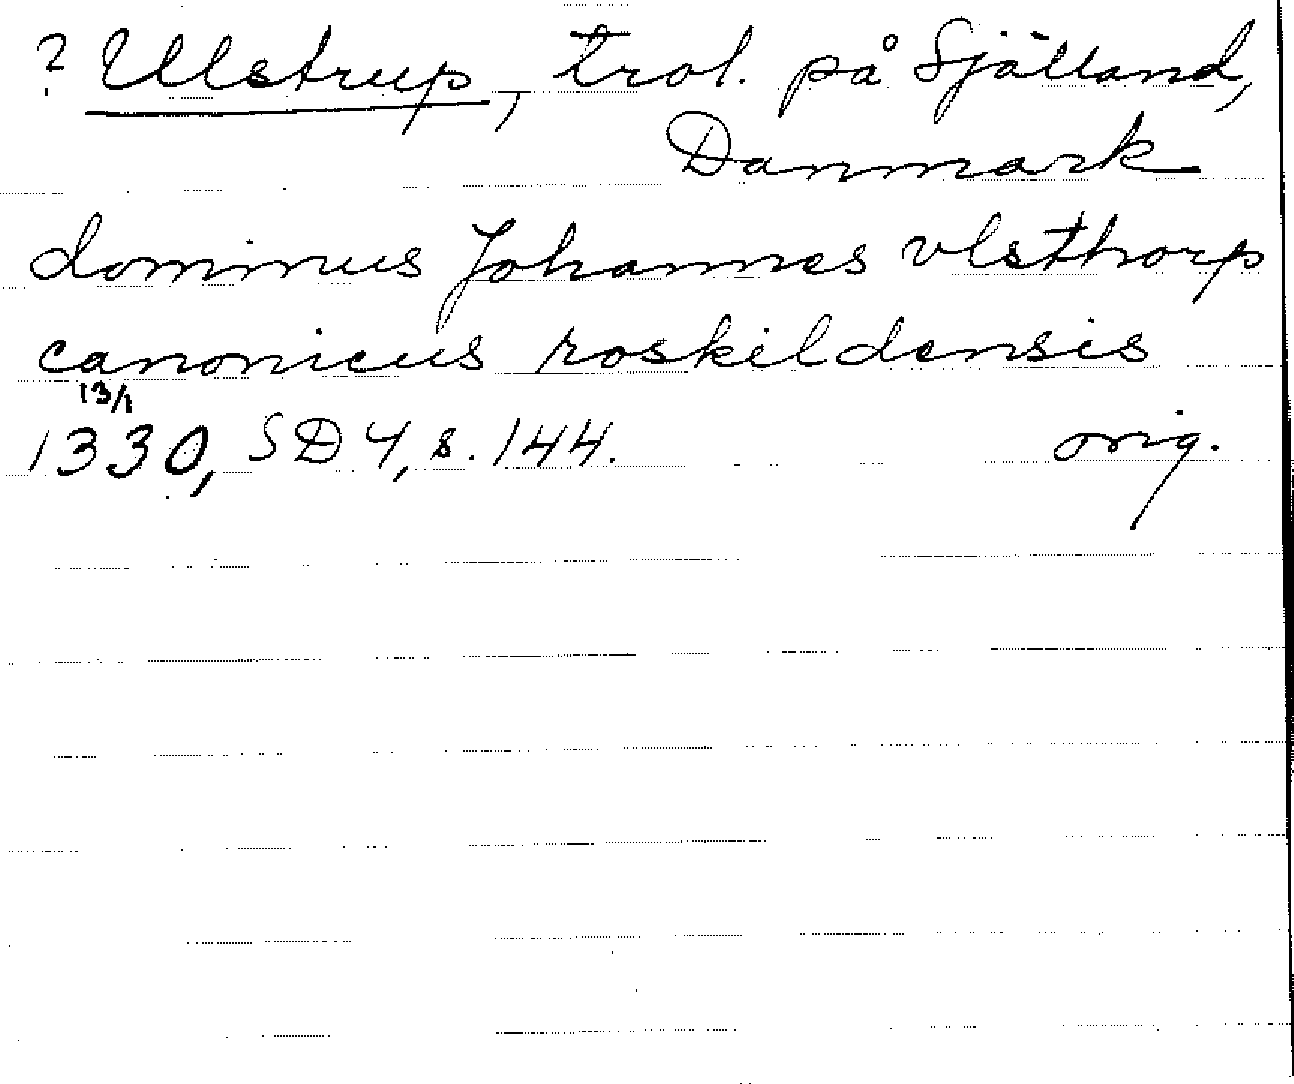 ? Ulstrup, trol. på Själland,
Danmark
dominus Johannes vlsthorp
canonicus roskildensis
13/1
1330, SD 4, s. 144. orig.